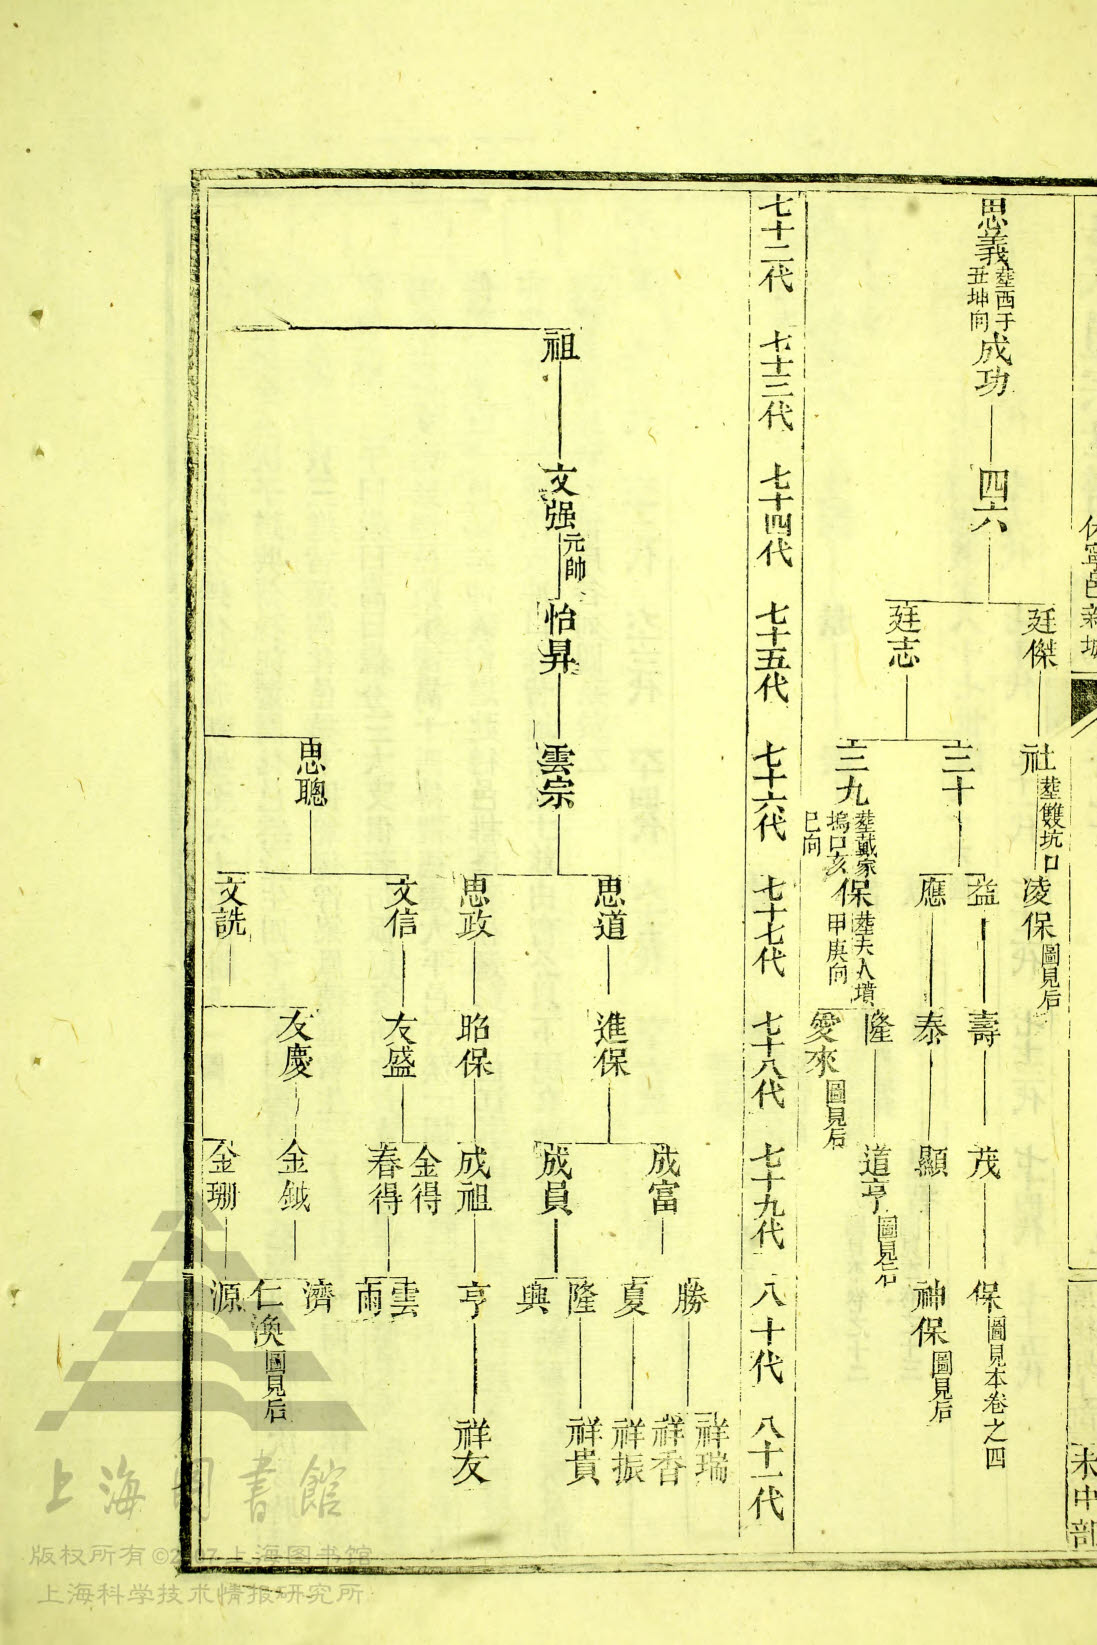 思義
葬西于
丑坤向
成功
四六
廷傑
社
葬雙坑口
凌保
圖見后
廷志
三十
益
壽
茂
保
圖見本卷之四
應
泰
顯
神保
圖見后
三九
葬戴家
塢口亥
巳向
保
葬夫人墳
甲庚向
隆
道亨
圖見后
愛來
圖見后
七十二代
七十三代
七十四代
七十五代
七十六代
七十七代
七十八代
七十九代
八十代
八十一代
祖
文强
元帥
怡昇
雲宗
思道
進保
成富
勝
祥瑞
祥香
夏
祥振
成員
隆
祥貴
興
思政
昭保
成祖
亨
祥友
思聰
文信
友盛
金得
春得
雲
雨
文詵
友慶
金鉞
濟
仁
渙
圖見后
金珊
源
未中部
上海图書館
版权所有©2007上海图书馆
上海科学技术情报研究所